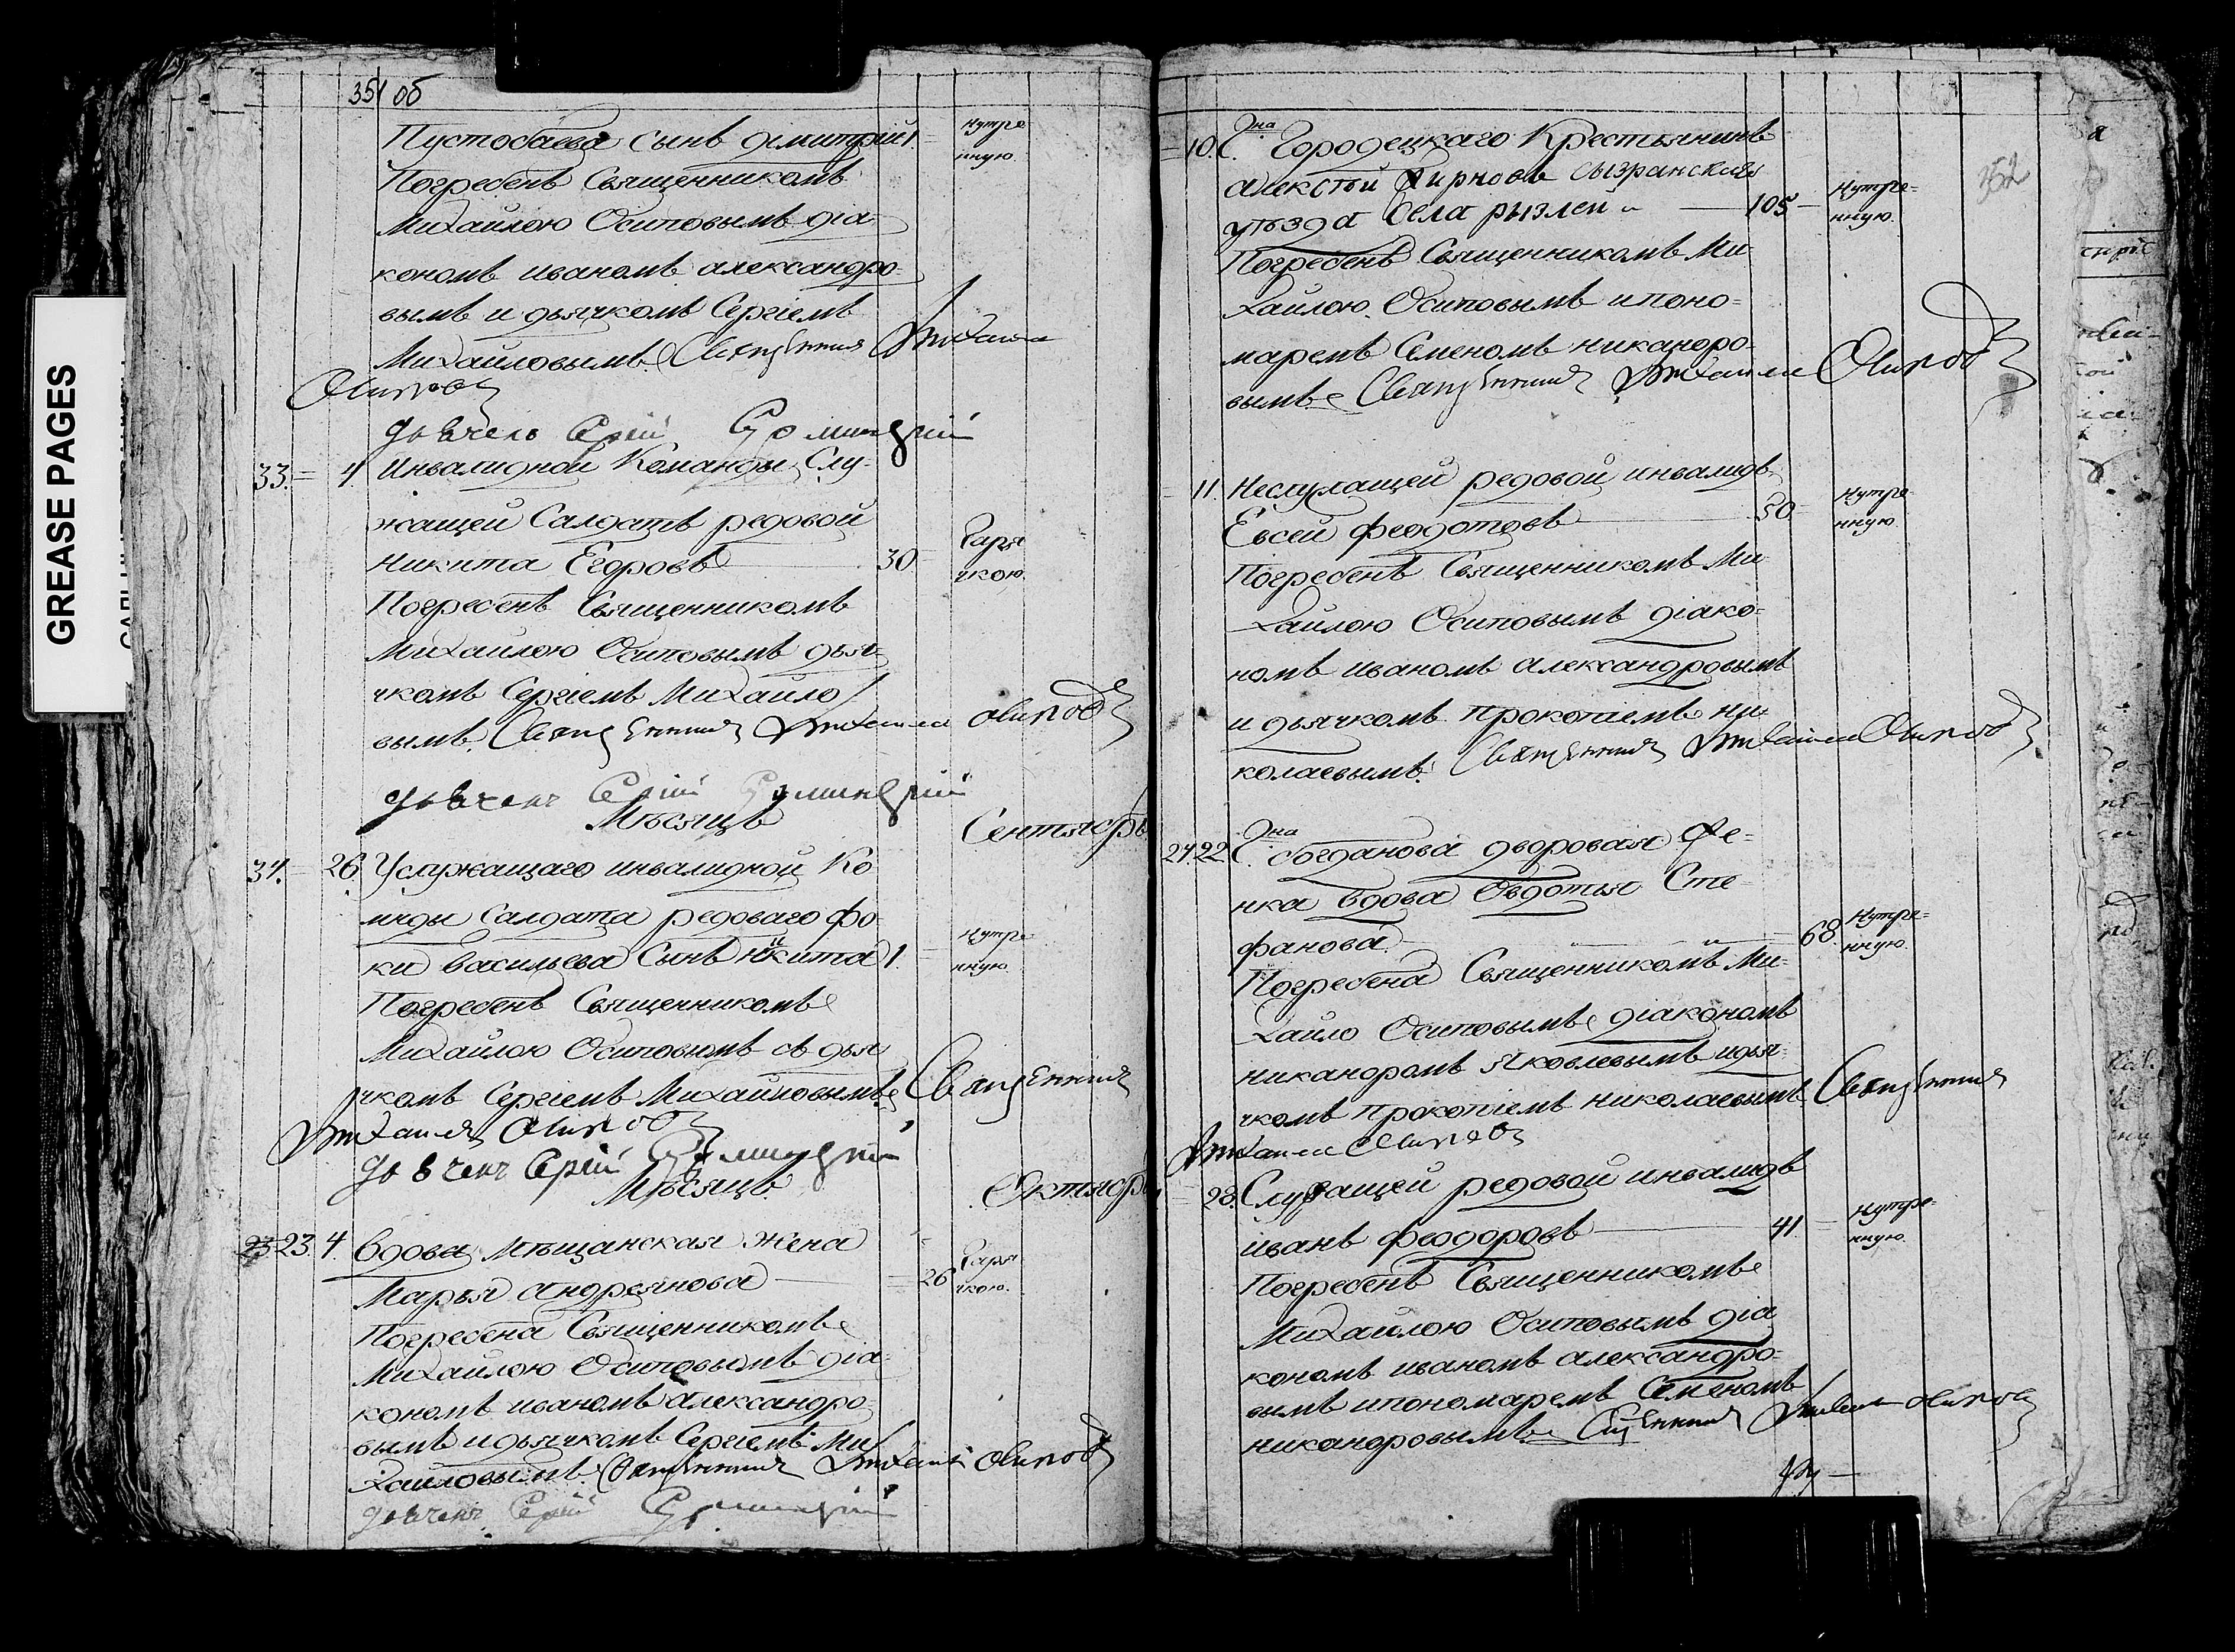 GREASE PAGES
351 об
Пустобаева сынъ димитрий 1. нутре
нную.
Погребенъ Священникомъ
Михайлою Осиповымъ діа-
кономъ иваномъ александро-
вымъ и дьячкомъ Сергіемъ
Михайловымъ. Священникъ Михаилъ
Осиповъ
дьячекъ Сергій
33. 4 Инвалидной Команды Слу-
жащей Салдатъ редовой
Никита Егоровъ 30 Горя
чкою.
Погребенъ Священникомъ
Михайлою Осиповымъ дья-
чкомъ Сергіемъ Михайло
вымъ. Священникъ Михаилъ Осиповъ
дьячекъ Сергій
Мѣсяцъ Сентябрь
34. 26. Услужащаго инвалидной Ко
мнды Салдата редоваго фо-
ки васильева Сынъ никита 1. нутре
нную.
Погребенъ Священникомъ
Михайлою Осиповымъ съ дья
чкомъ Сергіемъ Михайловымъ. Священникъ
Михаилъ Осиповъ
дьячекъ Сергій
Мѣсяцъ Октябрь
23 23. 4. вдова мѣщанская жена
Марья андреянова 26 Горя
чкою.
Погребена Священникомъ
Михайлою Осиповымъ діа-
кономъ иваномъ александро-
вымъ идьячкомъ Сергіемъ Ми
хайловымъ. Священникъ Михаилъ Осиповъ
дьячекъ Сергій
352
10. Гна С. Городецкаго Крестьянинъ
алексѣй Сызранскаго
уѣзда Села рызлей 105 Нутре-
нную.
Погребенъ Священникомъ Ми-
хайлою Осиповымъ ипоно-
маремъ Семеномъ никандро-
вымъ Священникъ Михаилъ Осиповъ
11. Неслужащей редовой инвалидъ
Евсей феодотовъ 50 Нутре
нную.
Погребенъ Священникомъ Ми
хайлою Осиповымъ діако-
номъ иваномъ александровымъ
и дьячкомъ прокопіемъ ни
колаевымъ. Священникъ Михаилъ Осиповъ
24. 22. Гна С. богданова дворовая Фе-
нка вдова Овдотья Сте-
фанова 68. Нутре-
нную.
Погребена Священникомъ Ми-
хайло Осиповымъ діакономъ
никандромъ яковлевымъ идья-
чкомъ прокопіемъ николаевымъ. Священникъ
Михаилъ Осиповъ
28. Служащей редовой инвалидъ
иванъ феодоровъ 41. Нутре-
нную.
Погребенъ Священникомъ
Михайлою Осиповымъ діа
кономъ иваномъ александро-
вымъ ипономаремъ Семеномъ
никандровымъ. Священникъ Михаилъ Осиповъ